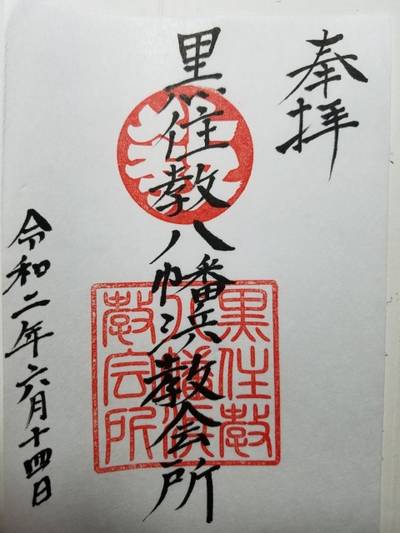 奉拝
黒住教八幡浜教会所
黒住教
八幡浜
教会所
令和二年六月十四日